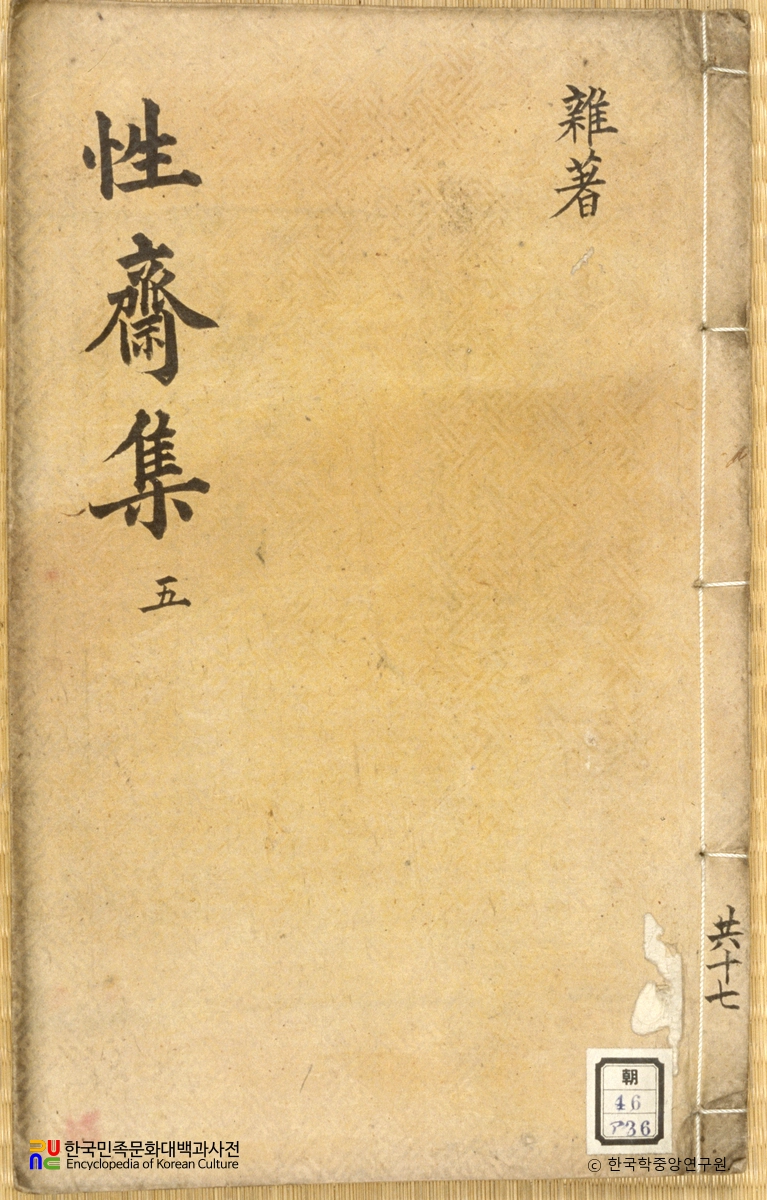 雜著
性齋集 五
共十七
朝
46
ア36
한국민족문화대백과사전
Encyclopedia of Korean Culture
© 한국학중앙연구원